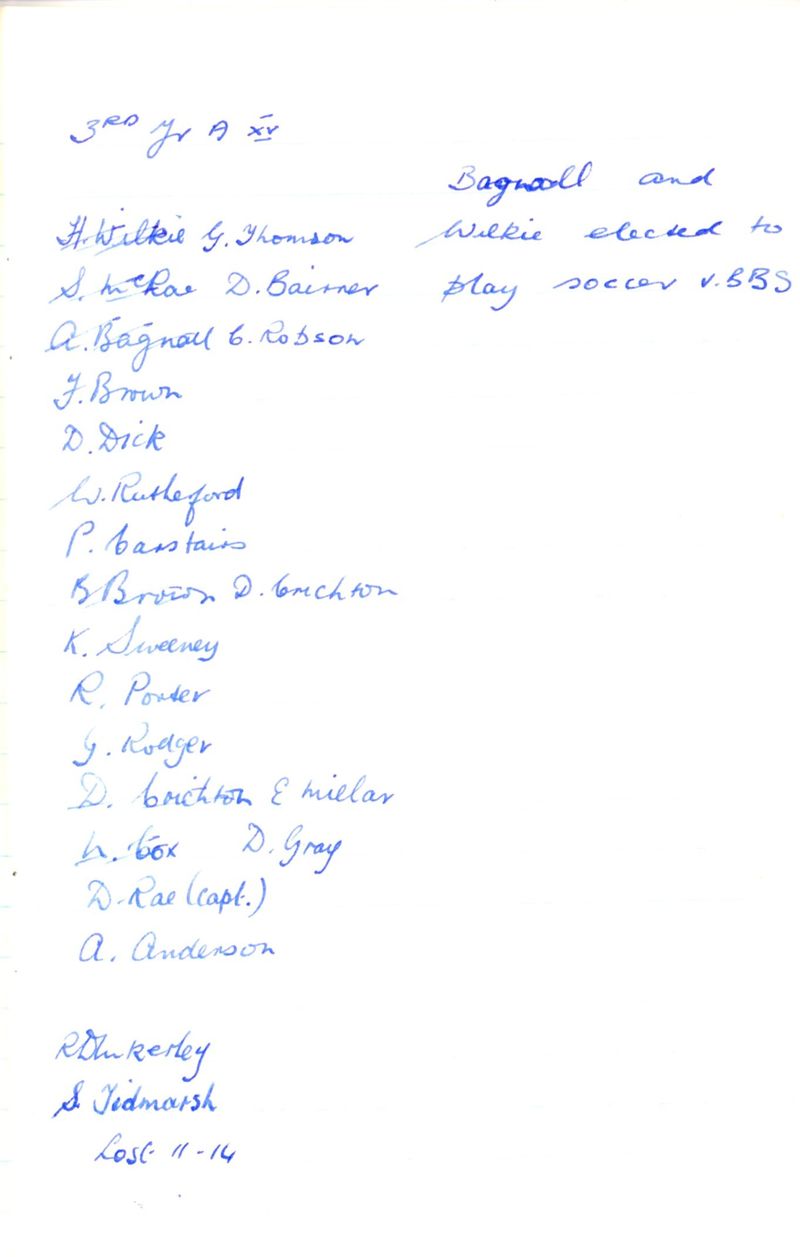 3RD Yr A XV
Bagnall and
Wilkie elected to
play soccer v. BBS
H. Wilkie G. Thomson
S. McRae D. Bairner
A. Bagnall C. Robson
F. Brown
D. Dick
W. Rutheford
P. Carstairs
B Brown D. Crichton
K. Sweeney
R. Porter
G. Rodger
D. Crichton E Millar
N. Cox D. Gray
D. Rae (capt.)
A. Anderson
S. Tidmarsh
Lost 11-14